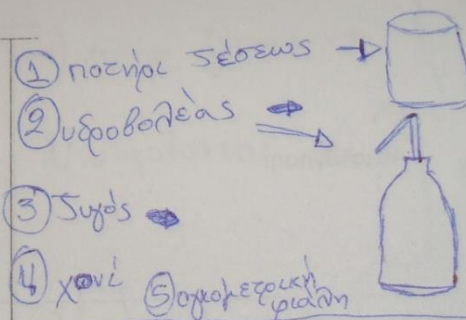 ① ποτήρι ζέσεως →
② υδροβολέας ⇒
③ ζυγός
④ χονί ⑤ ογκομετρική
φιάλη